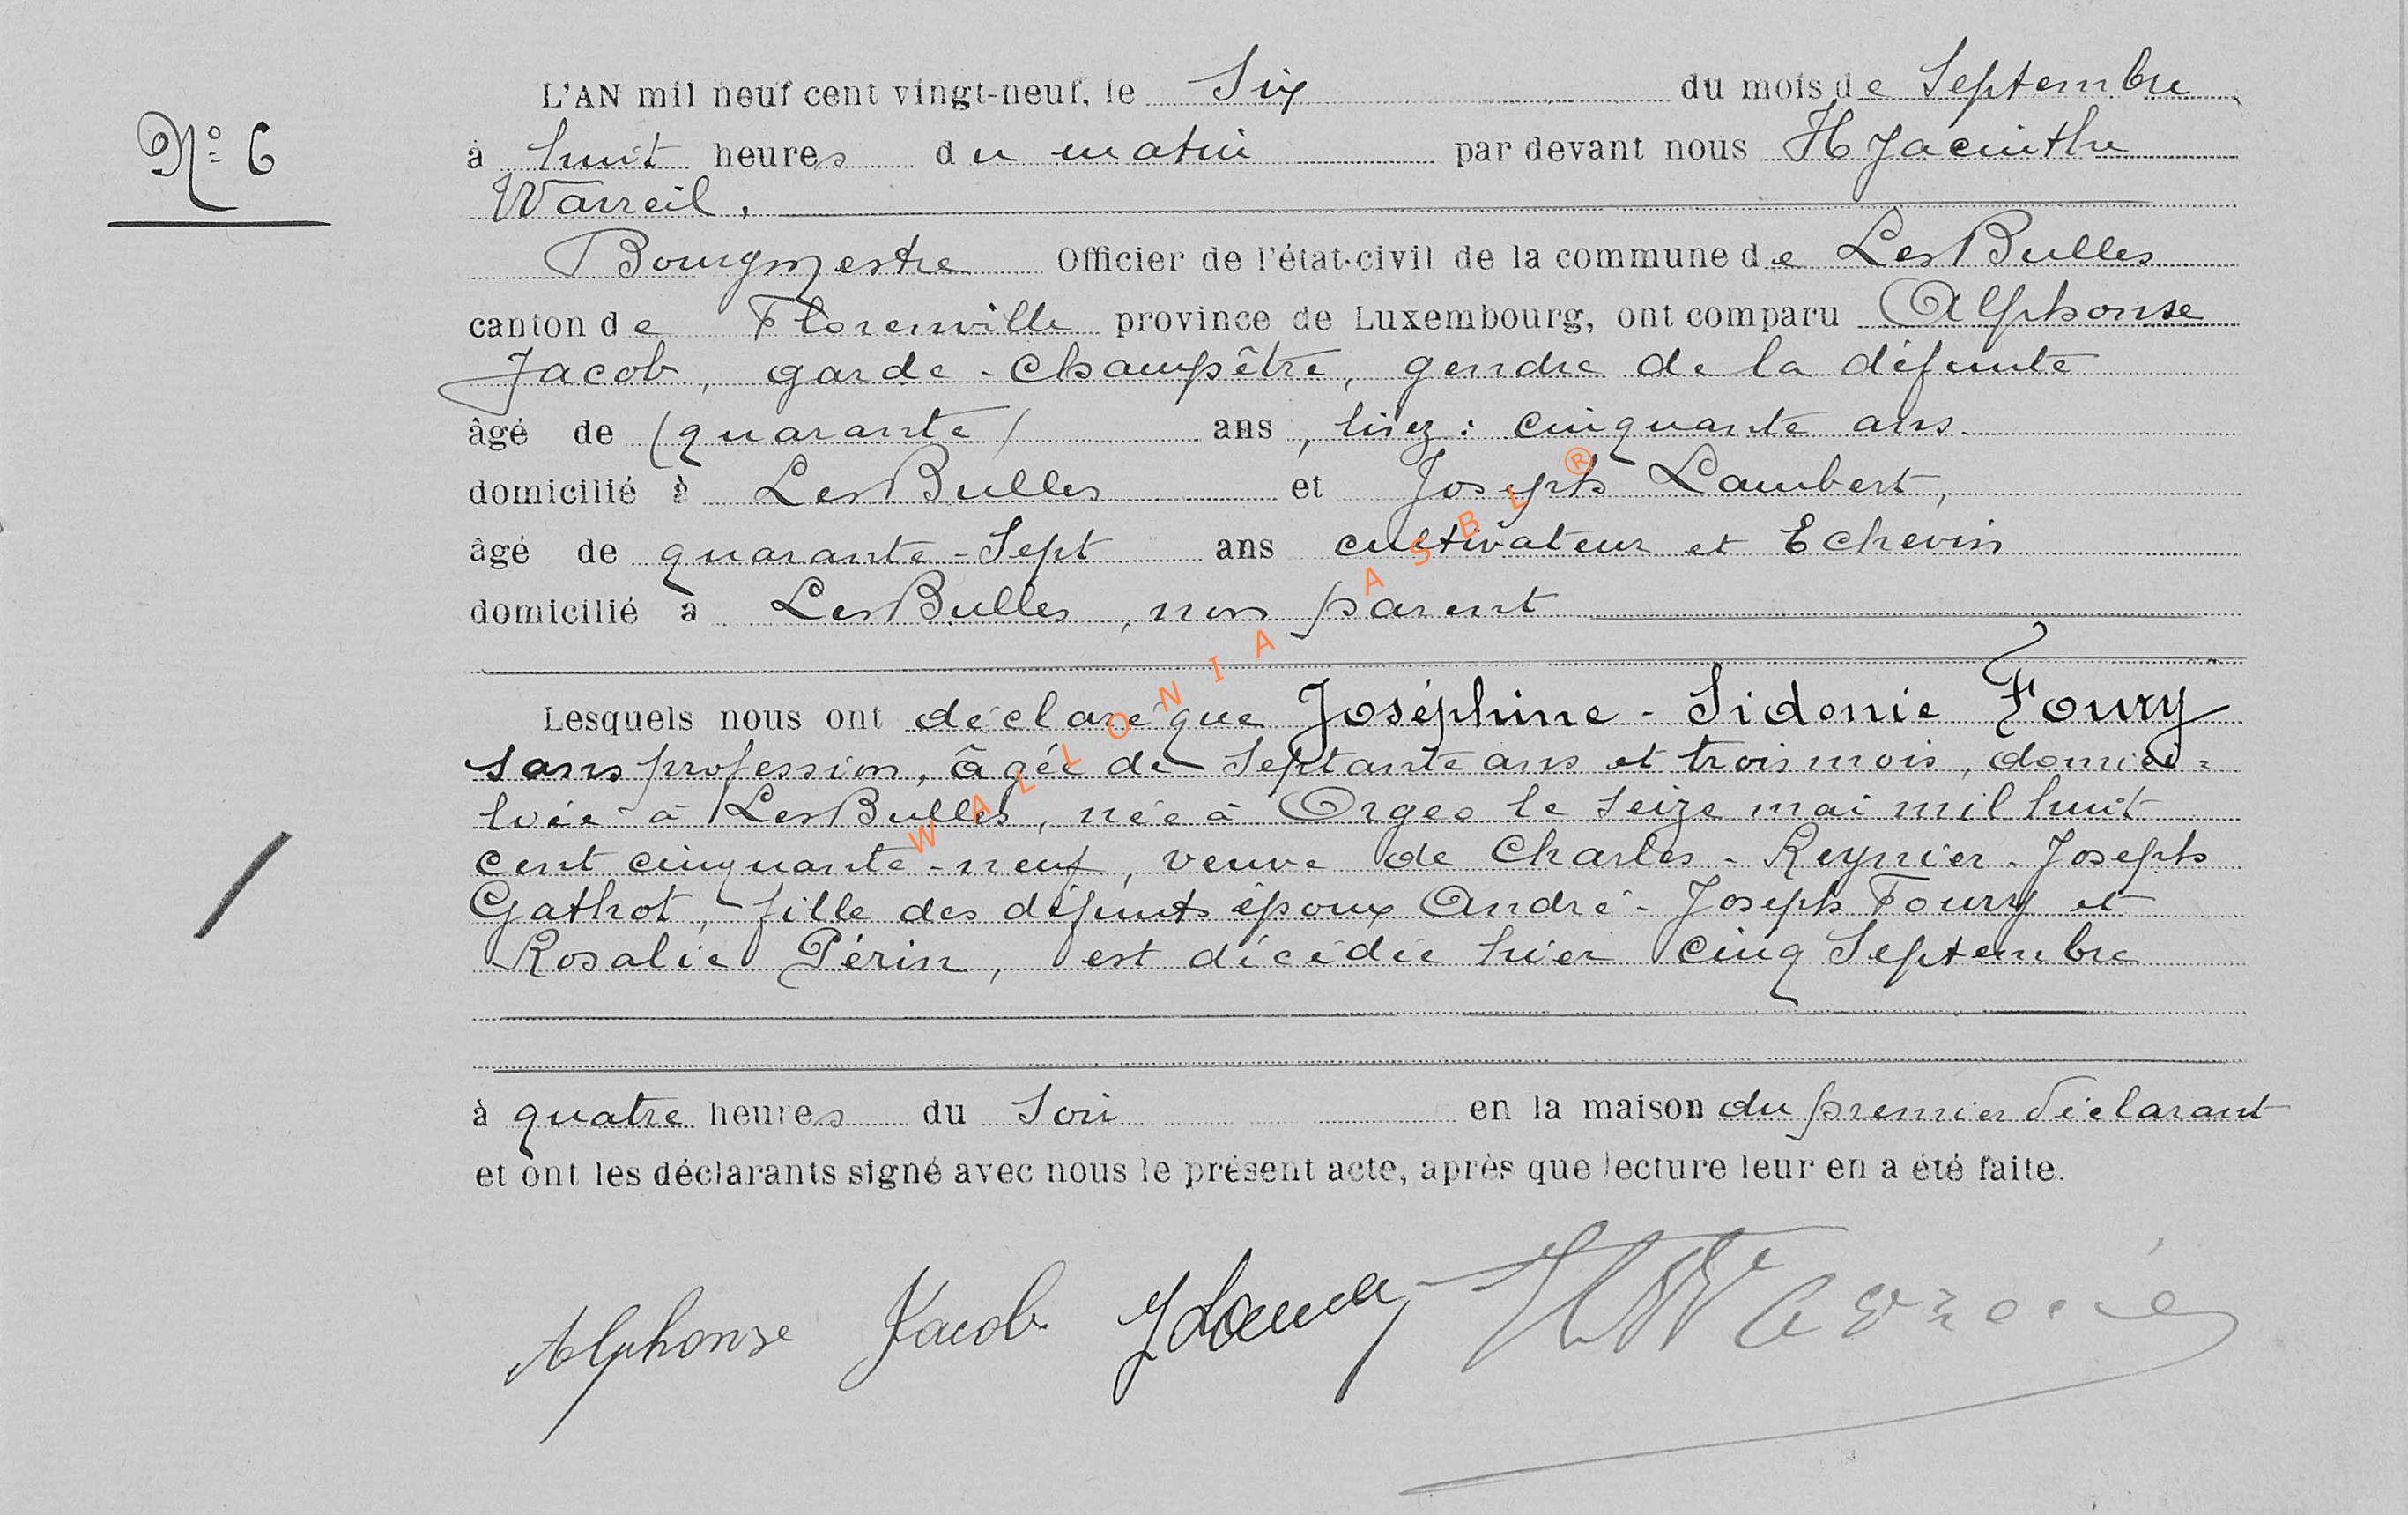 L'AN mil neuf cent vingt-neuf, le Six du mois de Septembre
N° 6
à huit heures du matin par devant nous Hyacinthe
Warreil,
Bourgmestre Officier de l'état-civil de la commune de Les Bulles
canton de Florenville province de Luxembourg, ont comparu Alphonse
Jacob, garde-champêtre, gendre de la défunte
âgé de (quarante) ans, lisez : cinquante ans.
domicilié à Les Bulles et Joseph Lambert,
âgé de quarante-Sept ans cultivateur et Echevin
domicilié à Les Bulles, non parent
Lesquels nous ont déclaré que Joséphine-Sidonie Foury
sans profession, âgée de Septante ans et trois mois, domici=
liée à Les Bulles, née à Orgeo le seize mai mil huit
cent cinquante-neuf, veuve de Charles-Reynier-Joseph
Gathot, fille des défunts époux André-Joseph Foury et
Rosalie Périn, est décédée hier cinq Septembre
à quatre heures du Soir en la maison du premier déclarant
et ont les déclarants signé avec nous le présent acte, après que lecture leur en a été faite.
Alphonse Jacob
WALLONIA ASBL ®